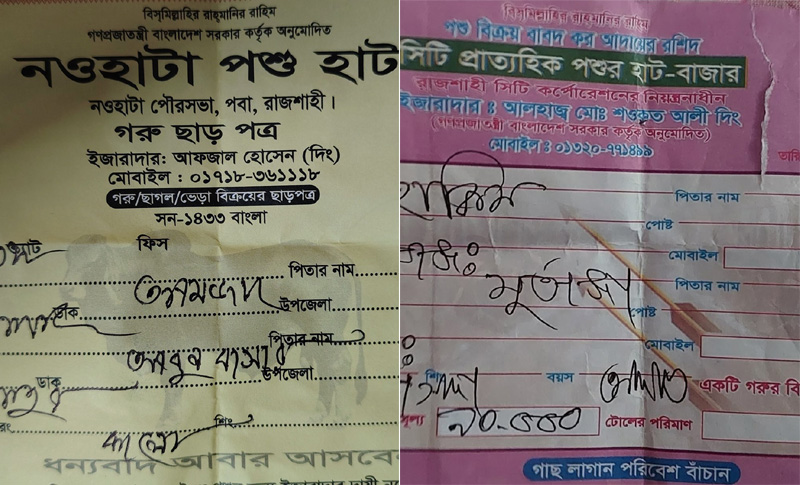 বিসমিল্লাহির রাহমানির রাহিম
গণপ্রজাতন্ত্রী বাংলাদেশ সরকার কর্তৃক অনুমোদিত
নওহাটা পশু হাট
নওহাটা পৌরসভা, পবা, রাজশাহী।
গরু ছাড় পত্র
ইজারাদার: আফজাল হোসেন (দিং)
মোবাইল : ০১৭১৮-৩৬১১১৮
গরু/ছাগল/ভেড়া বিক্রয়ের ছাড়পত্র
সন-১৪৩৩ বাংলা
ফিস
পিতার নাম
উপজেলা
ডাক
পিতার নাম
আবুল বাসার
উপজেলা
ডাক
শিং
কালো
ধন্যবাদ আবার আসবেন
বিসমিল্লাহির রাহমানির রাহিম
পশু বিক্রয় বাবদ কর আদায়ের রশিদ
সিটি প্রাত্যহিক পশুর হাট-বাজার
রাজশাহী সিটি কর্পোরেশনের নিয়ন্ত্রনাধীন
ইজারাদার ঃ আলহাজ্ব মোঃ শওকত আলী দিং
(গণপ্রজাতন্ত্রী বাংলাদেশ সরকার কর্তৃক অনুমোদিত)
মোবাইল : ০১৩২০-৭৭১৪৯৯
পিতার নাম
পোষ্ট
মোবাইল
মূর্তজা
পিতার নাম
পোষ্ট
মোবাইল
শিং
বয়স
একটি গরুর বি
মূল্য
৯০-৫৫০
টোলের পরিমাণ
গাছ লাগান পরিবেশ বাঁচান